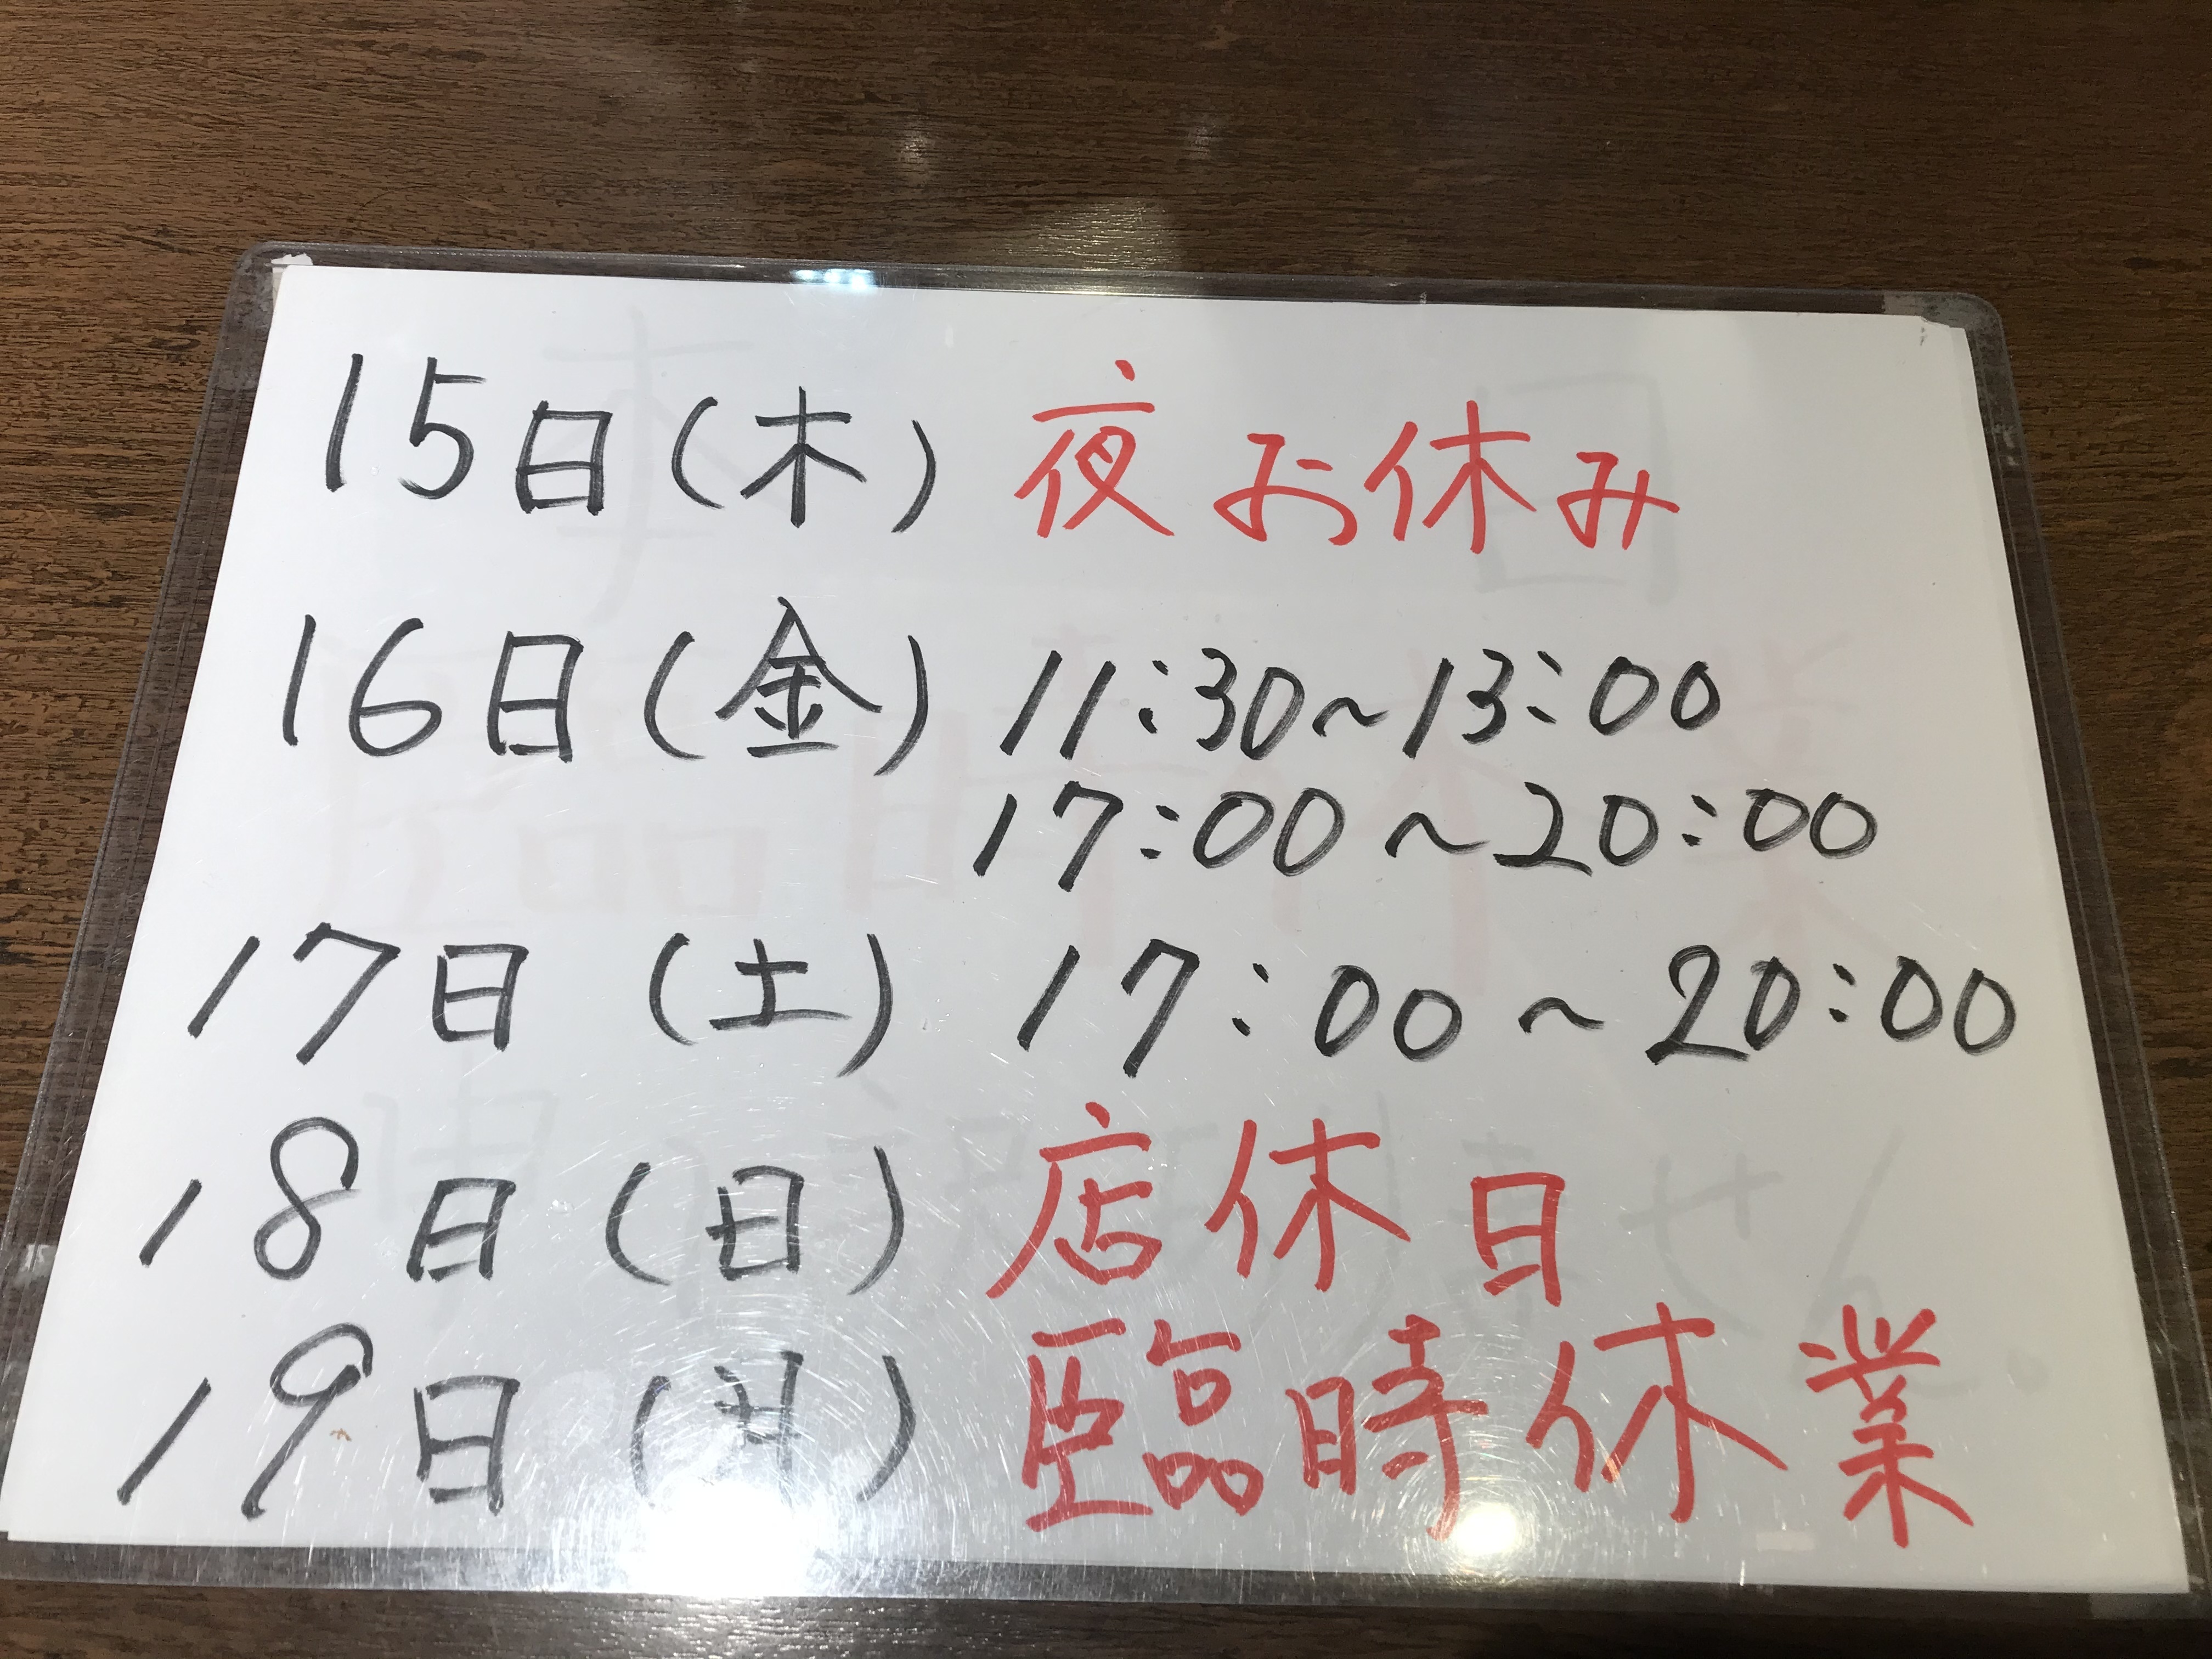 15日(木) 夜お休み
16日(金) 11:30~13:00
17:00~20:00
17日(土) 17:00~20:00
18日(日) 店休日
19日(月) 臨時休業